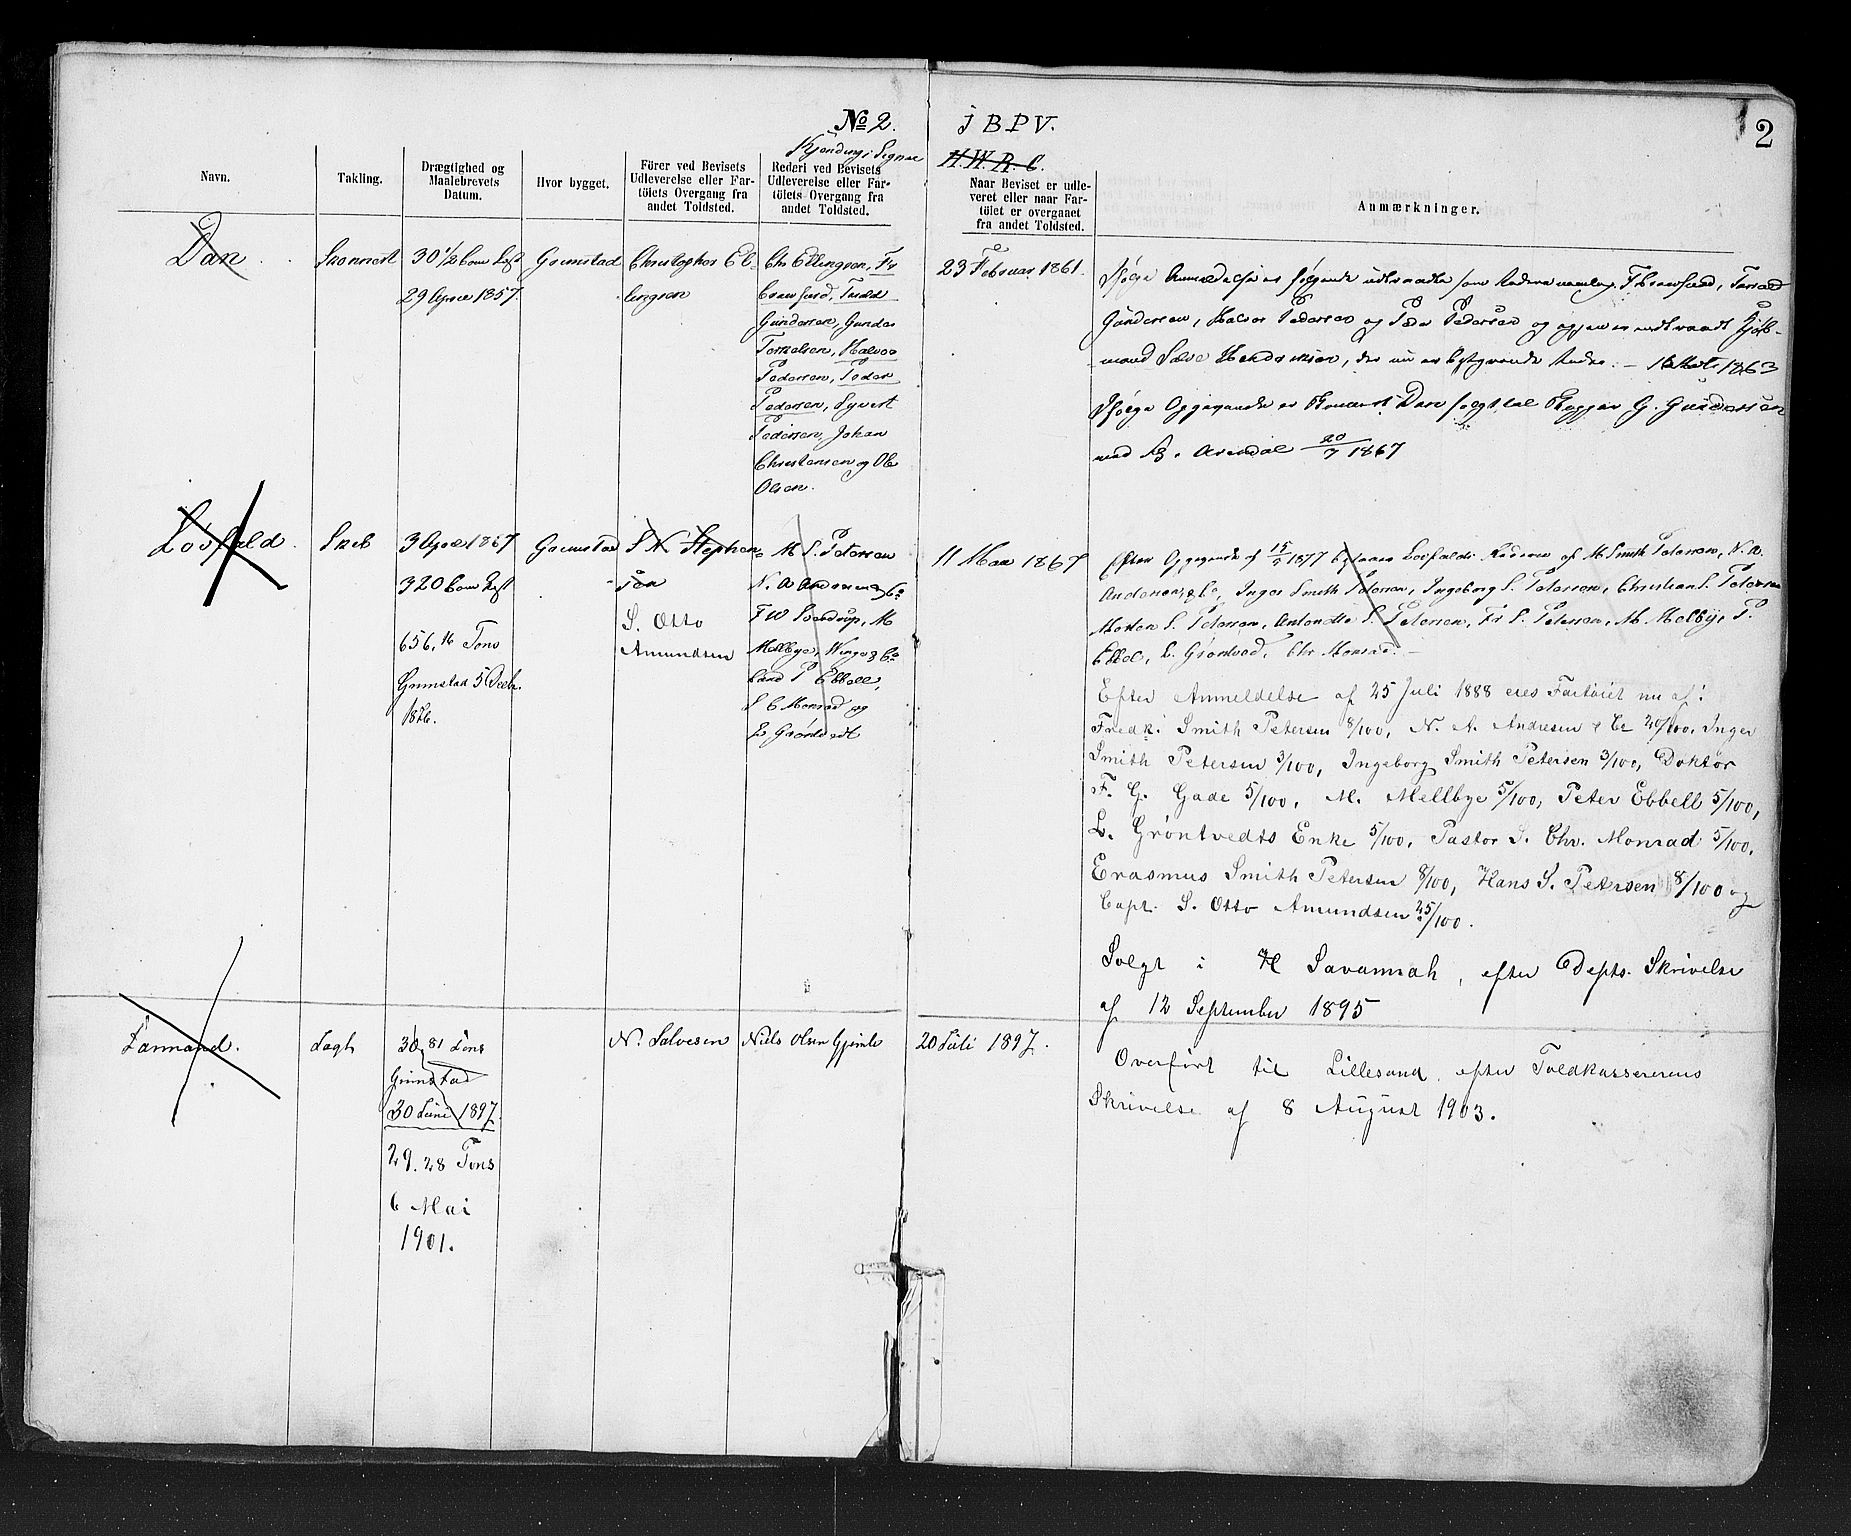 No 2.
J B P V.
2
Kjendings Signal
H. W. R. C.
Navn.
Takling.
Drægtighed og
Maalebrevets
Datum.
Hvor bygget.
Förer ved Bevisets
Udleverelse eller Far-
töiets Overgang fra
andet Toldsted.
Rederi ved Bevisets
Udleverelse eller Far-
töiets Overgang fra
andet Toldsted.
Naar Beviset er udle-
veret eller naar Far-
töiet er overgaaet
fra andet Toldsted.
Anmærkninger.
Dan
Skonnert
30 1/2 Com Lest
29 April 1857.
Grimstad
Christopher El-
lingsen
Chr Ellingsen, Fr
Crawfurd, Tarald
Gundersen, Gunder
Terkelsen, Halvor
Pedersen, Peder
Pedersen, Syvert
Pedersen, Johan
Christensen og Ole
Olsen.
23 Februar 1861.
Ifølge Anmeldelse er følgende udtraadte som Redere nemlig F Crawfurd, Tarald
Gundersen, Halvor Pedersen og Peder Pedersen og igjen er indtraadt Kjøb-
mand Salve Henderssen, der nu er bestyrende Reder. – 1863
Ifølge Opgivende er Skonnert Dan solgt til Skipper G. Gundersen
ved Arendal 20/7 1867
Løvfald.
Skib
3 April 1867
320 Com Lest
656,16 Tons
Grimstad 5 Decbr.
1876.
Grimstad
S N Stephan-
sen
S. Otto
Amundsen
M S. Petersen
N. A Andresen & Co
F W Sverdrup, M
Mellbye, Winge & Co
Cand P Ebbell,
S C Monrad og
L Grøntvedt
11 Mai 1867
Efter Opgivende af 15/ 1877 bestaar Løvfalds Rederi af M. Smith Petersen, N. A.
Andresen & Co, Inger Smith Petersen, Ingeborg S. Petersen, Christian S. Petersen
Morten S. Petersen, Antonette S. Petersen, Fr S. Petersen, M. Melbye, P.
Ebbel, L. Grøntved, Chr Monrad. –
Efter Anmeldelse af 25 Juli 1888 eies Fartøiet nu af:
Fredk. Smith Petersen 8/100, N. A. Andresen & Co 20/100, Inger
Smith Petersen 3/100, Ingeborg Smith Petersen 3/100, Doktor
F. G. Gade 5/100, M. Mellbye 5/100, Peter Ebbell 5/100,
L. Grøntvedts Enke 5/100, Pastor S. Chr. Monrad 5/100,
Erasmus Smith Petersen 8/100, Hans S. Petersen 8/100 og
Capt. S. Otto Amundsen 25/100.
Solgt i Savannah, efter Depts. Skrivelse
af 12 September 1895
Jagt
30,81 Tons
Grimstad
30 Juni 1897.
29.28 Tons
6 Mai
1901.
N. Salvesen
Niels Olsen Gjømle
20 Juli 1897.
Overført til Lillesand, efter Toldkassererens
Skrivelse af 8 August 1903.